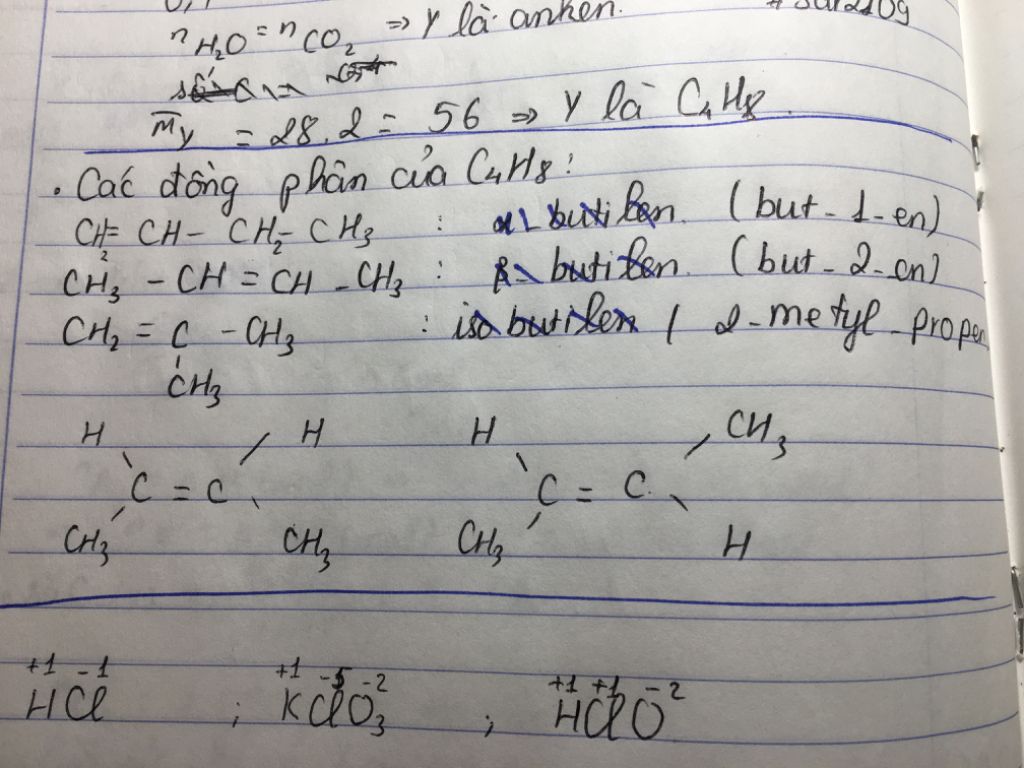 nH₂O = nCO₂ => Y là anken.
M̅y = 28.2 = 56 => Y là C₄H₈
. Các đồng phân của C₄H₈:
CH₂ = CH - CH₂ - CH₃ : butilen. (but - 1 - en)
CH₃ - CH = CH - CH₃ : β - butilen. (but - 2 - en)
CH₂ = C - CH₃ : iso butilen ( 2 - metyl - propen
CH₃
H H H CH₃
C = C C = C
CH₃ CH₃ CH₃ H
+1 -1 +1 -5 -2 +1 +1 -2
HCl ; KClO₃ ; HClO